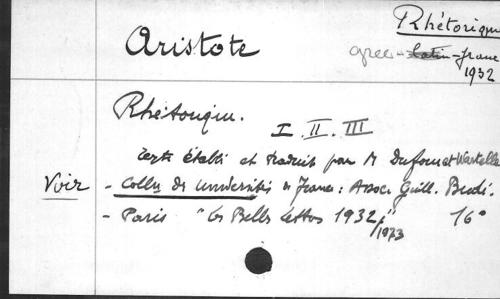 Rhétorique
Aristote
grec-latin-franc
1932
Rhétorique.
I. II. III
texte établi et traduit par M Dufour et Wartelle
Voir - Colln des universités de France: Assoc Guill. Budé.
- Paris "les Belles Lettres 1932," 16°
/1973